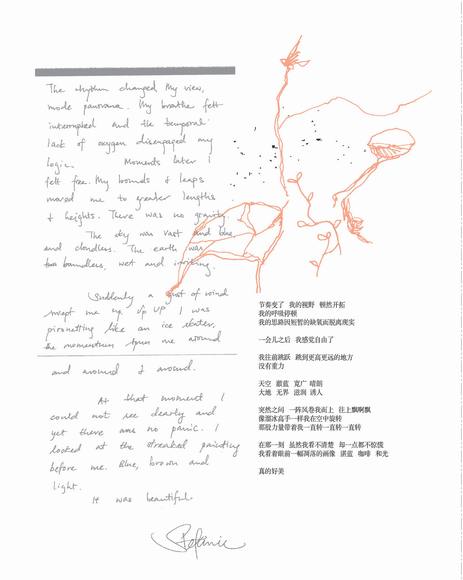 The rhythm changed my view,
mode panorama. My breathe felt
interrupted and the temporal
lack of oxygen disengaged my
logic. Moments later I
felt free. My bounds & leaps
moved me to greater lengths
& heights. There was no gravity.
The sky was vast and blue
and cloudless. The earth was
too boundless, wet and inviting.
Suddenly a gust of wind
swept me up, up UP I was
pironetting like an ice skater,
the momentum spun me around
and around & around.
At that moment I
could not see clearly and
yet there was no panic. I
looked at the streaked painting
before me. Blue, brown and
light.
It was beautiful.
Stefanie
节奏变了 我的视野 顿然开拓
我的呼吸停顿
我的思路因短暂的缺氧而脱离现实
一会儿之后 我感觉自由了
我往前跳跃 跳到更高更远的地方
没有重力
天空 湛蓝 宽广 晴朗
大地 无界 滋润 诱人
突然之间 一阵风卷我而上 往上飘啊飘
像溜冰高手一样我在空中旋转
那股力量带着我一直转一直转一直转
在那一刻 虽然我看不清楚 却一点都不惊慌
我看着眼前一幅凋落的画像 湛蓝 咖啡 和光
真的好美